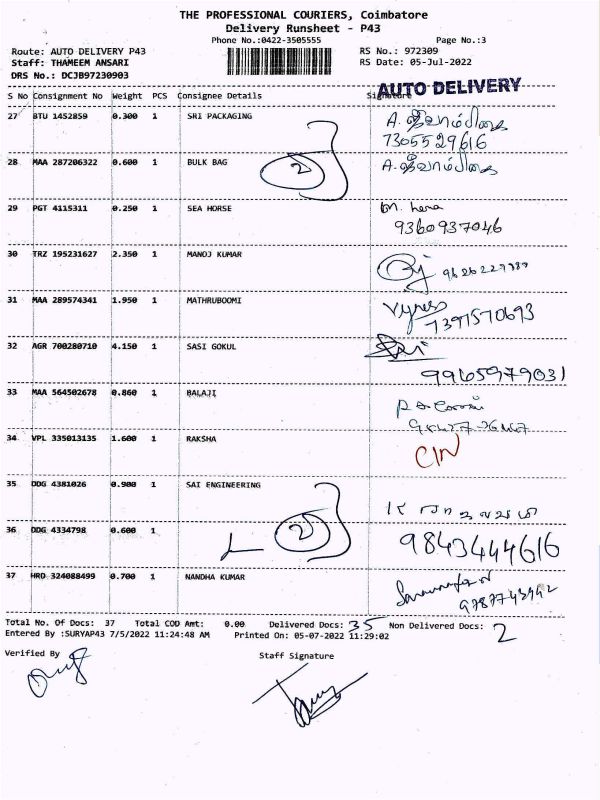 THE PROFESSIONAL COURIERS, Coimbatore
Delivery Runsheet - P43
Phone No.:0422-3505555 Page No.:3
Route: AUTO DELIVERY P43 RS No.: 972309
Staff: THAMEEM ANSARI RS Date: 05-Jul-2022
DRS No.: DCJB97230903
AUTO DELIVERY
S No Consignment No Weight PCS Consignee Details Signature
27 BTU 1452859 0.300 1 SRI PACKAGING
7305529616
28 MAA 287206322 0.600 1 BULK BAG 2
29 PGT 4115311 0.250 1 SEA HORSE
9360937046
30 TRZ 195231627 2.350 1 MANOJ KUMAR
31 MAA 289574341 1.950 1 MATHRUBOOMI
7397570693
32 AGR 700280710 4.150 1 SASI GOKUL
9965979031
33 MAA 564502678 0.860 1 BALAJI
34 VPL 335013135 1.600 1 RAKSHA
35 DDG 4381026 0.900 1 SAI ENGINEERING
36 DDG 4334798 0.600 1 2 9843444616
37 HRD 324088499 0.700 1 NANDHA KUMAR
Total No. Of Docs: 37 Total COD Amt: 0.00 Delivered Docs: 35 Non Delivered Docs: 2
Entered By :SURYAP43 7/5/2022 11:24:48 AM Printed On: 05-07-2022 11:29:02
Verified By Staff Signature